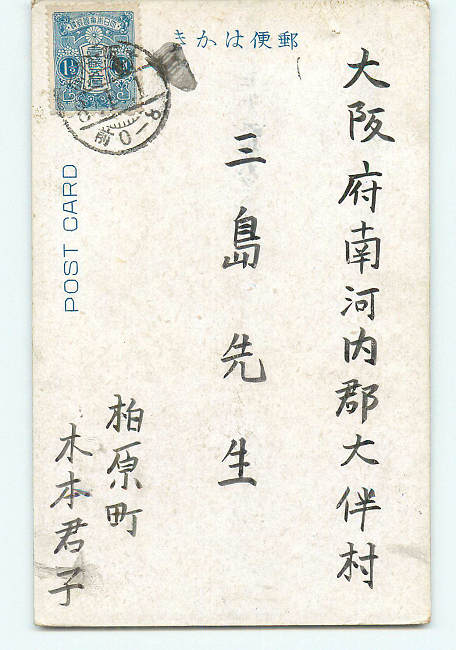 郵便はかき
大阪府南河内郡大伴村
三島先生
柏原町
木本君子
POST CARD